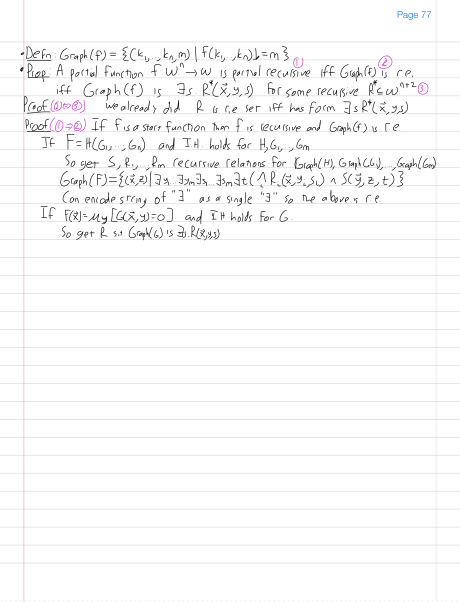 Page 77
• Defn: Graph(f) = {(k₁,...,kₙ,m) | f(k₁,...,kₙ)↓=m}
• Prop: A partial function f:ωⁿ→ω is partial recursive iff Graph(f) is r.e. ① ②
iff Graph(f) is ∃s R*(x⃗,y,s) for some recursive R*⊆ωⁿ⁺² ③
Proof (②⇔③) we already did R is r.e. set iff has form ∃s R*(x⃗,y,s)
Proof (①→②) If f is a start function then f is recursive and Graph(f) is r.e
If F=H(G₁,...,Gₙ) and IH holds for H,G₁,...,Gₘ
So get S, R₁,...,Rₘ recursive relations for (Graph(H), Graph(G₁),...,Graph(Gₘ)
Graph(F)={(x⃗,z)|∃y₁...∃yₘ∃s₁...∃sₘ∃t(⋀Rᵢ(x⃗,yᵢ,sᵢ) ∧ S(y⃗,z,t)}
Can encode string of "∃" as a single "∃" so the above is r.e
If F(x⃗)=μy[G(x⃗,y)=0] and IH holds for G.
So get R s.t. Graph(G) is ∃s.R(x⃗,y,s)